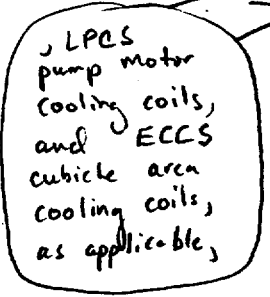 , LPCS
pump motor
cooling coils,
and ECCS
cubicle area
cooling coils,
as applicable,